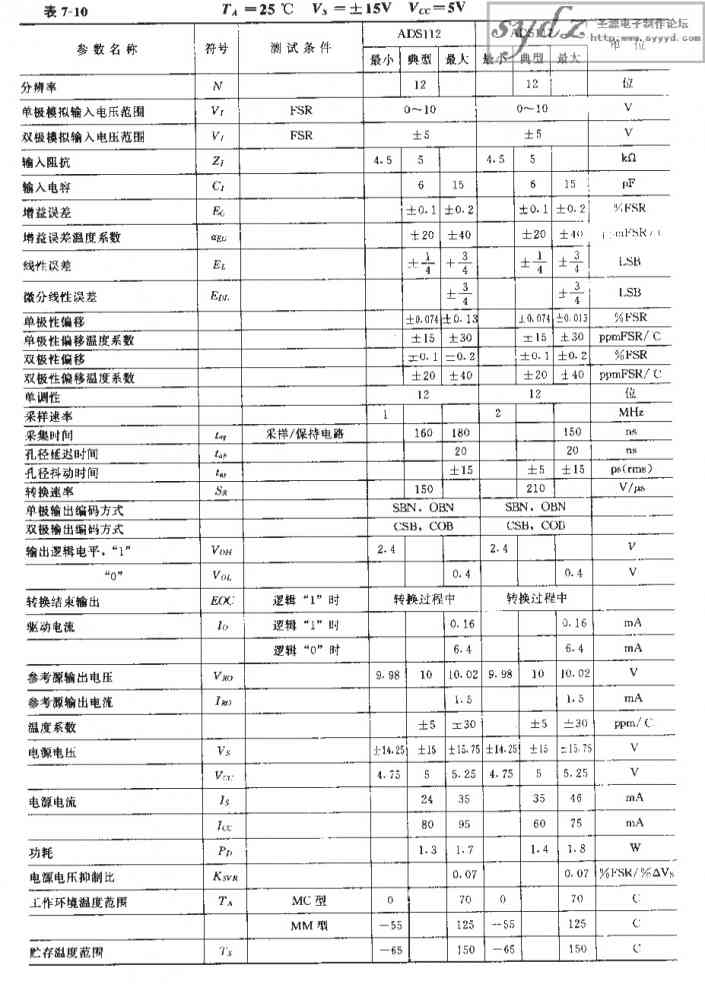 表 7-10 T_A =25 ℃ V_S =±15V V_CC =5V
sydz 圣源电子制作论坛
http://www.syyyd.com
参数名称 符号 测试条件 ADS112 单位
最小 典型 最大 最小 典型 最大
分辨率 N 12 12 位
单极模拟输入电压范围 V_I FSR 0~10 0~10 V
双极模拟输入电压范围 V_I FSR ±5 ±5 V
输入阻抗 Z_I 4.5 5 4.5 5 kΩ
输入电容 C_I 6 15 6 15 pF
增益误差 E_G ±0.1 ±0.2 ±0.1 ±0.2 %FSR
增益误差温度系数 α_EG ±20 ±40 ±20 ±40
线性误差 E_L ±1/4 +3/4 ±1/4 ±3/4 LSB
微分线性误差 E_DL ±3/4 ±3/4 LSB
单极性偏移 ±0.074 ±0.13 ±0.074 ±0.013 %FSR
单极性偏移温度系数 ±15 ±30 ±15 ±30 ppmFSR/℃
双极性偏移 ±0.1 ±0.2 ±0.1 ±0.2 %FSR
双极性偏移温度系数 ±20 ±40 ±20 ±40 ppmFSR/℃
单调性 12 12 位
采样速率 1 2 MHz
采集时间 采样/保持电路 160 180 150 ns
孔径延迟时间 20 20 ns
孔径抖动时间 ±15 ±5 ±15 ps(rms)
转换速率 S_R 150 210 V/μs
单极输出编码方式 SBN，OBN SBN，OBN
双极输出编码方式 CSB，COB CSB，COB
输出逻辑电平，“1” V_OH 2.4 2.4 V
“0” V_OL 0.4 0.4 V
转换结束输出 EOC 逻辑“1”时 转换过程中 转换过程中
驱动电流 I_O 逻辑“1”时 0.16 0.16 mA
逻辑“0”时 6.4 6.4 mA
参考源输出电压 V_RO 9.98 10 10.02 9.98 10 10.02 V
参考源输出电流 I_RO 1.5 1.5 mA
温度系数 ±5 ±30 ±5 ±30 ppm/℃
电源电压 V_S ±14.25 ±15 ±15.75 ±14.25 ±15 ±15.75 V
V_CC 4.75 5 5.25 4.75 5 5.25 V
电源电流 I_S 24 35 35 46 mA
I_CC 80 95 60 75 mA
功耗 P_D 1.3 1.7 1.4 1.8 W
电源电压抑制比 K_SVR 0.07 0.07 %FSR/%ΔV_S
工作环境温度范围 T_A MC 型 0 70 0 70 ℃
MM 型 −55 125 −55 125 ℃
贮存温度范围 T_S −65 150 −65 150 ℃